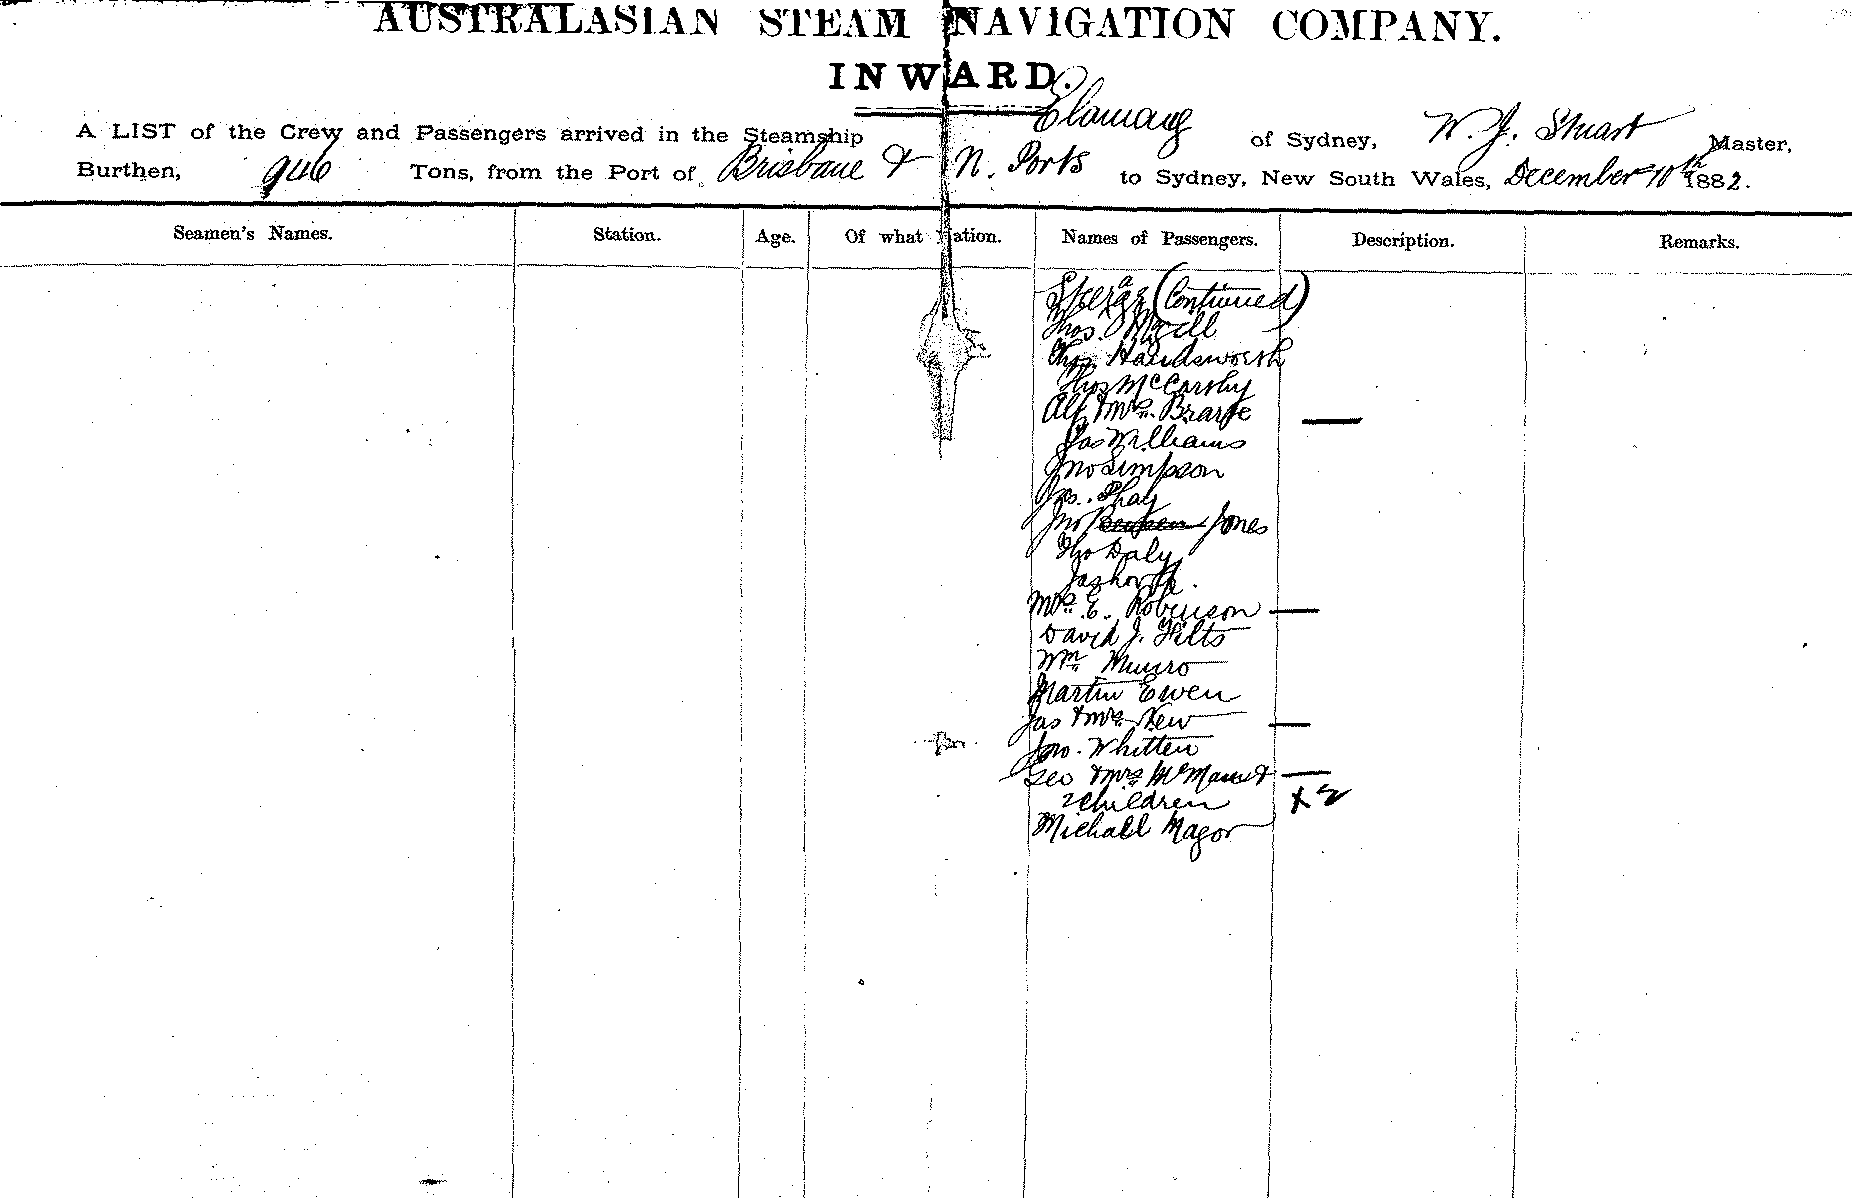 AUSTRALASIAN STEAM NAVIGATION COMPANY.
INWARD.
A LIST of the Crew and Passengers arrived in the Steamship Elamang of Sydney, W. J. Stuart Master,
Burthen, Tons, from the Port of Brisbane & N. Ports to Sydney, New South Wales, December 10th 1882.
Seamen's Names. Station. Age. Of what Nation. Names of Passengers. Description. Remarks.
(Continued)
Thos. McGill
Thos. Handsworth
Thos McCarthy
Alf & Mrs.
Jas Williams
Jno Simpson
Jas. Shay
Jno Jones
Tho Daly
Jas
Mrs. E. Robinson —
David J. Filts
Wm Munro
Martin Ewen
Jas & Mrs New —
Jno. Whitten
Geo & Mrs &
2 children x 2
Michall Magor